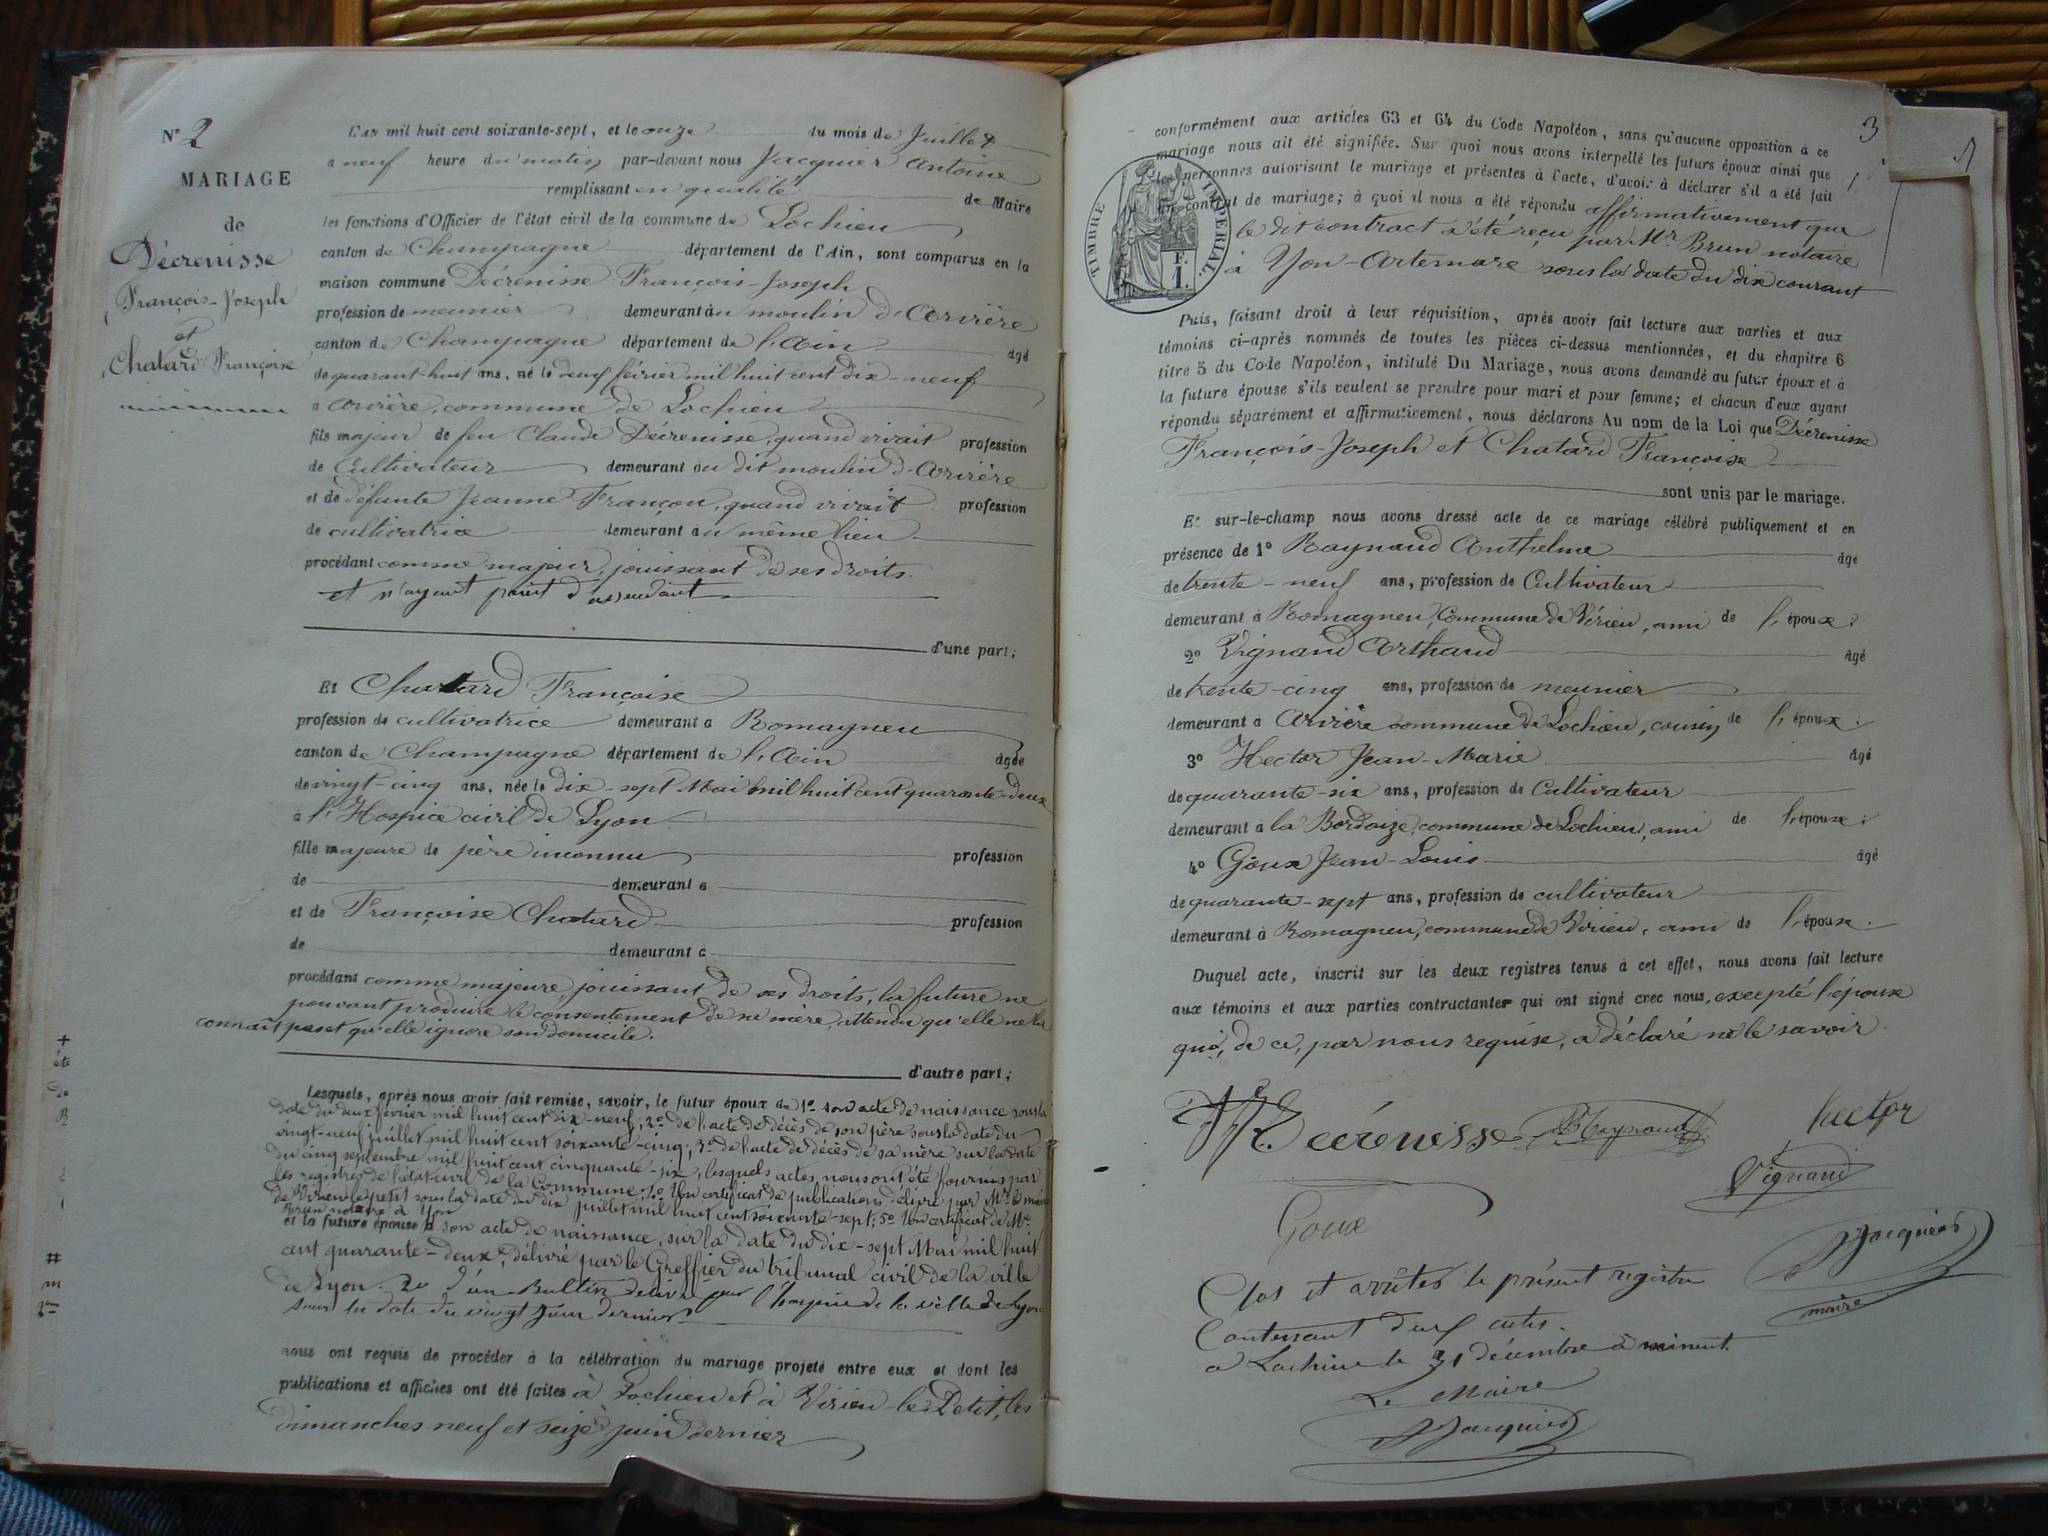 N° 2
MARIAGE
de
Décrenisse
François-Joseph
et
Chatard Françoise
L'an mil huit cent soixante-sept, et le onze du mois de Juillet
à neuf heure du matin par-devant nous Jacquier Antoine
remplissant en qualité de Maire
les fonctions d'Officier de l'état civil de la commune de Lochieu
canton de Champagne département de l'Ain, sont comparus en la
maison commune Décrenisse François-Joseph
profession de meunier demeurant au moulin d'Arvière
canton de Champagne département de l'Ain âgé
de quarant-huit ans, né le deux février mil huit cent dix-neuf
à Arvière, commune de Lochieu
fils majeur de feu Claude Décrenisse, quand vivait profession
de Cultivateur demeurant au dit moulin d'Arvière
et de défunte Jeanne Françon, quand vivait profession
de cultivatrice demeurant au même lieu
procédant comme majeur, jouissant de ses droits.
et n'ayant point d'ascendant
d'une part;
Et Chatard Françoise
profession de cultivatrice demeurant à Romagneu
canton de Champagne département de l'Ain âgée
de vingt-cinq ans, née le dix-sept Mai mil huit cent quarante-deux
à l'Hospice civil de Lyon
fille majeure de père inconnu profession
de demeurant à
et de Françoise Chatard profession
de demeurant à
procédant comme majeure, jouissant de ses droits, la future ne
pouvant produire le consentement de sa mère, attendu qu'elle ne la
connaît pas et qu'elle ignore son domicile.
d'autre part;
Lesquels, après nous avoir fait remise, savoir, le futur époux de 1° son acte de naissance sous la
date du deux février mil huit cent dix-neuf; 2° de l'acte de décès de son père sous la date du
vingt-neuf juillet mil huit cent soixante-cinq; 3° de l'acte de décès de sa mère sur la date
du cinq septembre mil huit cent cinquante-six, lesquels actes, nous ont été fournis par
les registres de l'état civil de la Commune; 4° Un certificat de publications délivré par Mr le maire
de Virieu-le-petit sous la date du dix juillet mil huit cent soixante-sept; 5° Un certificat de Me
Brun notaire à Yon
et la future épouse à son acte de naissance, sur la date du dix-sept Mai mil huit
cent quarante-deux, délivré par le Greffier du tribunal civil de la ville
de Lyon. 2° d'un Bulletin délivré par l'hospice de la ville de Lyon
sous la date du vingt Juin dernier
nous ont requis de procéder à la célébration du mariage projeté entre eux et dont les
publications et affiches ont été faites à Lochieu et à Virieu-le-Petit, les
dimanches neuf et seize juin dernier
3
conformément aux articles 63 et 64 du Code Napoléon, sans qu'aucune opposition à ce
mariage nous ait été signifiée. Sur quoi nous avons interpellé les futurs époux ainsi que
les personnes autorisant le mariage et présentes à l'acte, d'avoir à déclarer s'il a été fait
un contrat de mariage; à quoi il nous a été répondu affirmativement que
le dit contract a été reçu par Mr Brun notaire
à Yon-Artemare sous la date du dix courant
TIMBRE IMPÉRIAL.
F.
1.
Puis, faisant droit à leur réquisition, après avoir fait lecture aux parties et aux
témoins ci-après nommés de toutes les pièces ci-dessus mentionnées, et du chapitre 6
titre 5 du Code Napoléon, intitulé Du Mariage, nous avons demandé au futur époux et à
la future épouse s'ils veulent se prendre pour mari et pour femme; et chacun d'eux ayant
répondu séparément et affirmativement, nous déclarons Au nom de la Loi que Décrenisse
François-Joseph et Chatard Françoise
sont unis par le mariage.
Et sur-le-champ nous avons dressé acte de ce mariage célébré publiquement et en
présence de 1° Raynaud Anthelme âgé
de trente-neuf ans, profession de Cultivateur
demeurant à Romagneu, Commune de Virieu, ami de l'époux;
2° Vignand Arthaud âgé
de trente-cinq ans, profession de meunier
demeurant à Arvière commune de Lochieu, cousin de l'époux;
3° Hector Jean-Marie âgé
de quarante-six ans, profession de Cultivateur
demeurant à la Bordaize, commune de Lochieu, ami de l'épouse;
4° Goux Jean-Louis âgé
de quarante-sept ans, profession de cultivateur
demeurant à Romagneu, commune de Virieu, ami de l'épouse.
Duquel acte, inscrit sur les deux registres tenus à cet effet, nous avons fait lecture
aux témoins et aux parties contractantes qui ont signé avec nous, excepté l'épouse
qui, de ce, par nous requise, a déclaré ne le savoir.
Decrenisse Raynaud hector
Vignand
Goux
Jacquier
maire
Clos et arrêtés le présent registre
Contenant deux actes.
a Lochieu le 31 décembre à minuit.
Le Maire
Jacquier